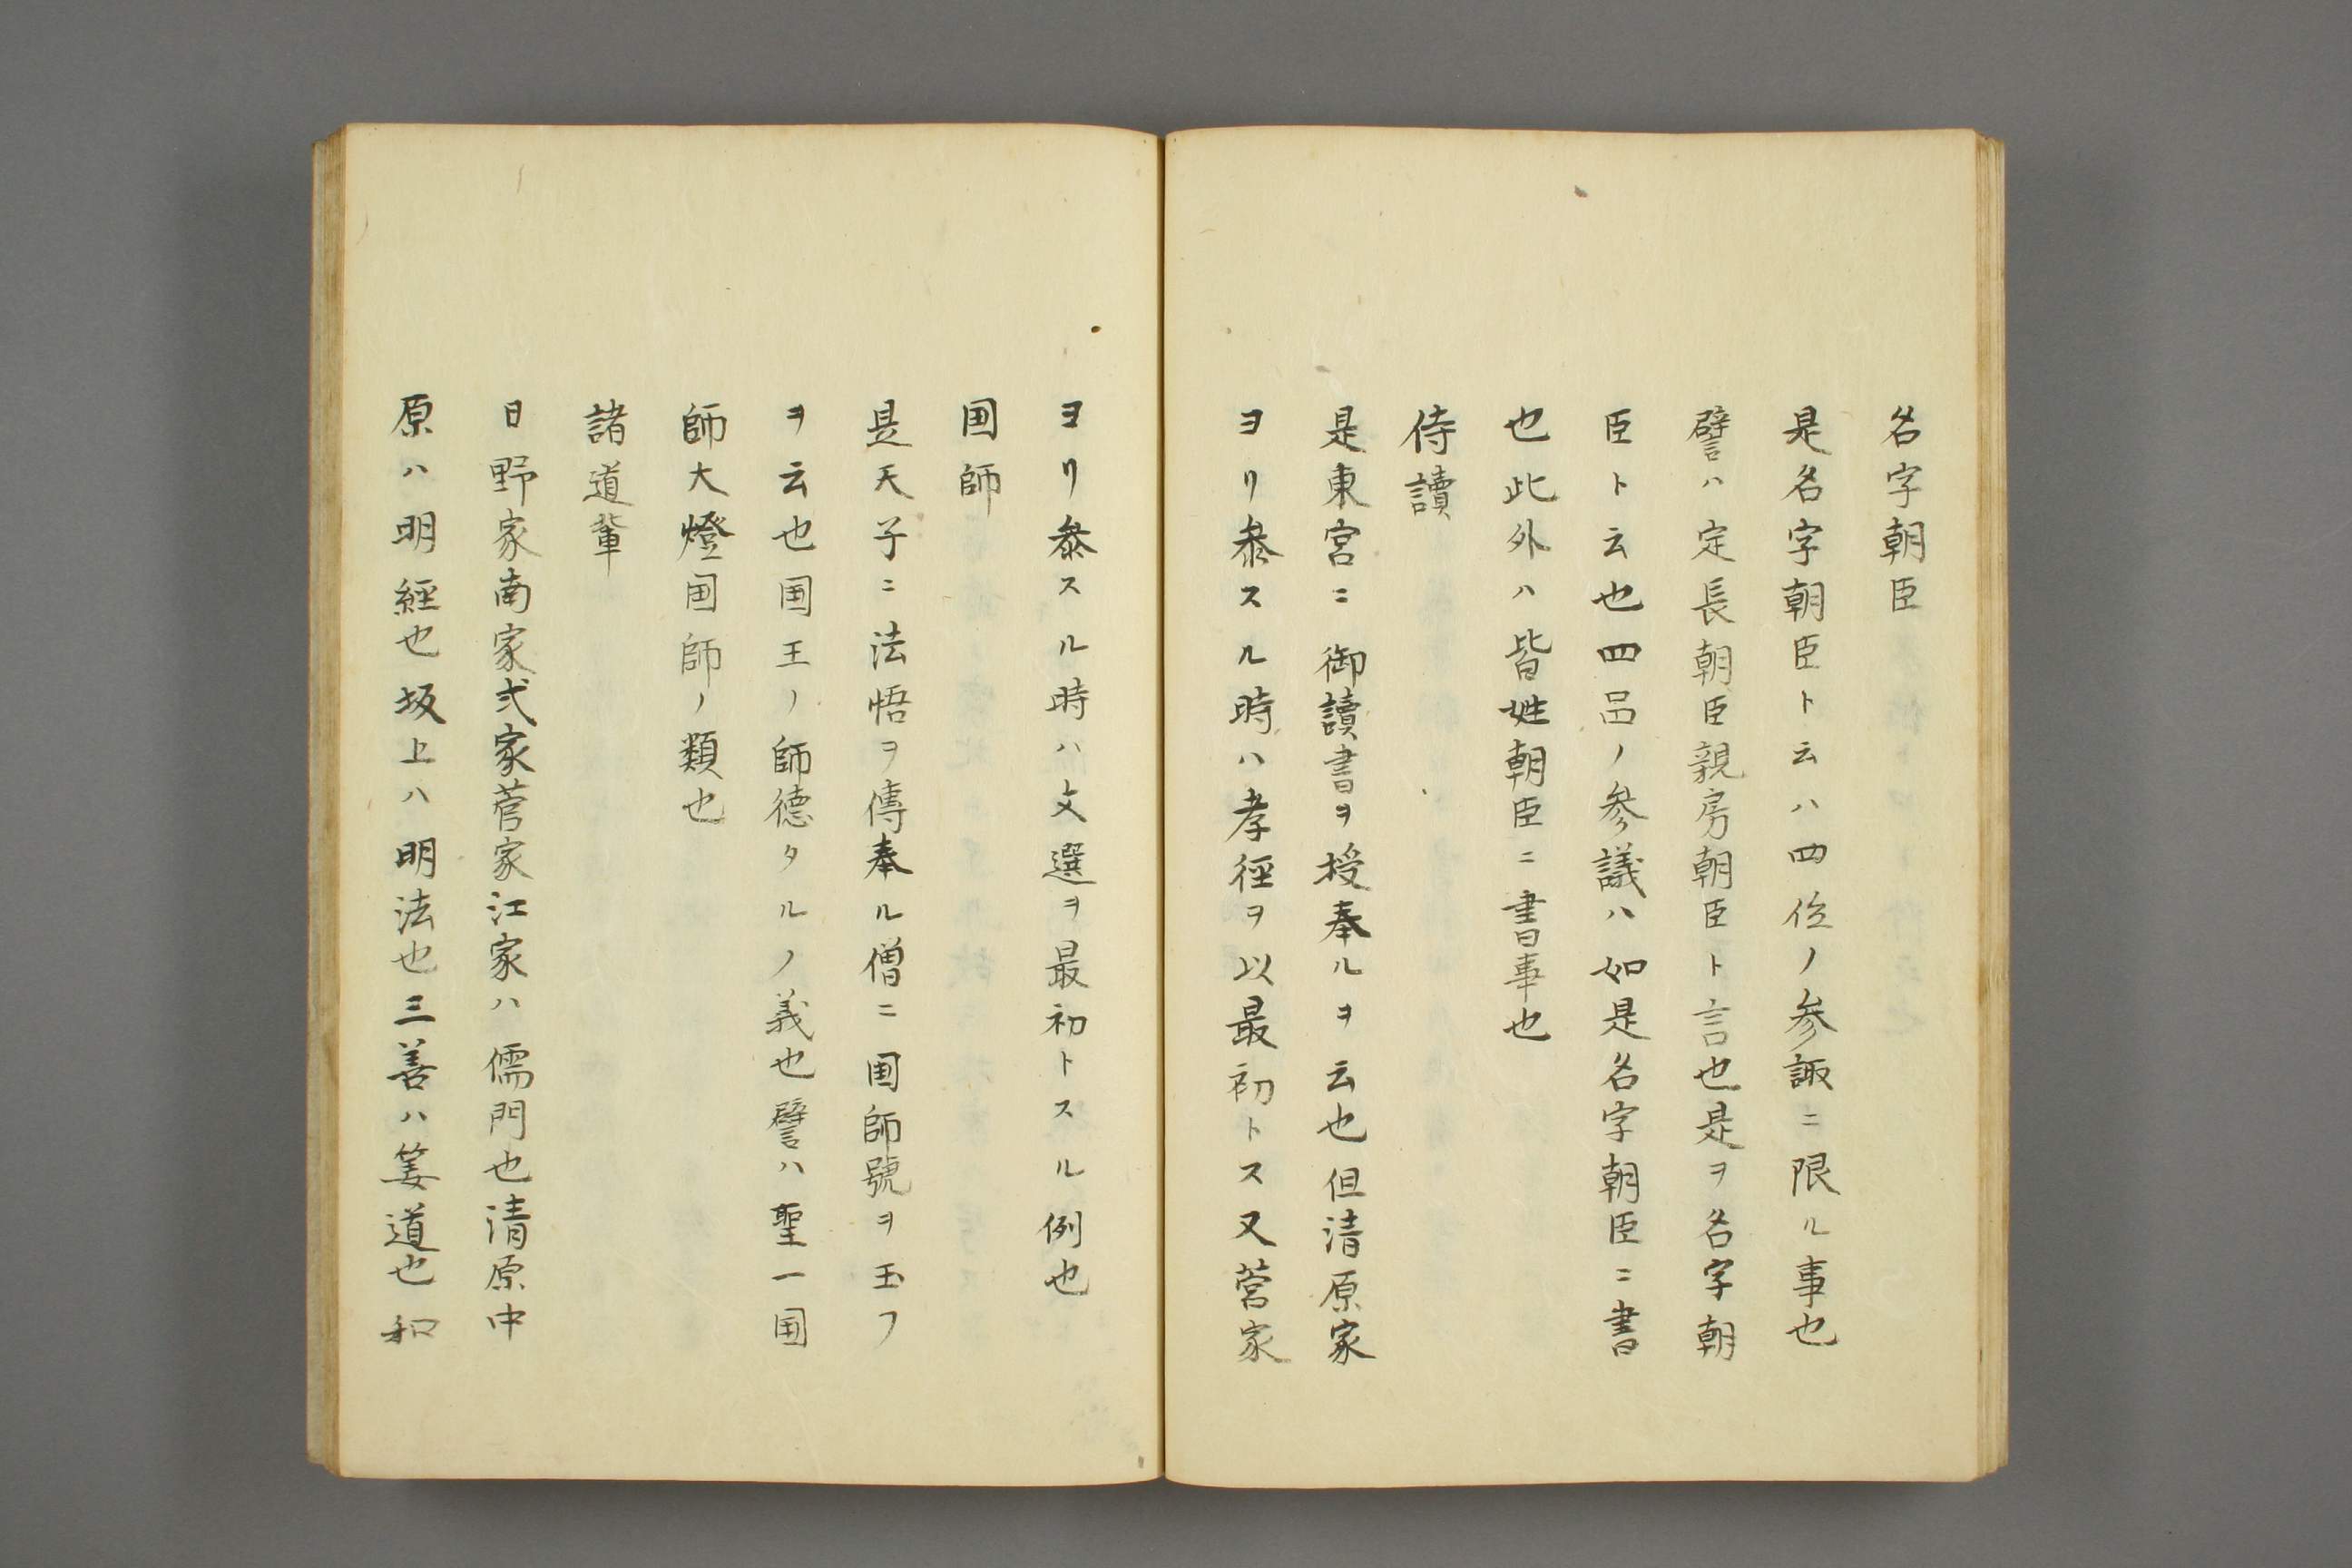 名字朝臣
是名字朝臣ト云ハ四位ノ参諏ニ限ル事也
譬ハ定長朝臣親房朝臣ト言也是ヲ名字朝
臣ト云也四品ノ参議ハ如是名字朝臣ニ書
也此外ハ皆姓朝臣ニ書事也
侍讀
是東宮ニ御讀書ヲ授奉ルヲ云也但清原家
ヨリ叅スル時ハ孝徑ヲ以最初トス又菅家
ヨリ叅スル時ハ文選ヲ最初トスル例也
国師
是天子ニ法悟ヲ傳奉ル僧ニ国師號ヲ玉フ
ヲ云也国王ノ師德タルノ義也譬ハ聖一国
師大燈国師ノ類也
諸道輩
日野家南家式家菅家江家ハ儒門也清原中
原ハ明經也坂上ハ明法也三善ハ筭道也和